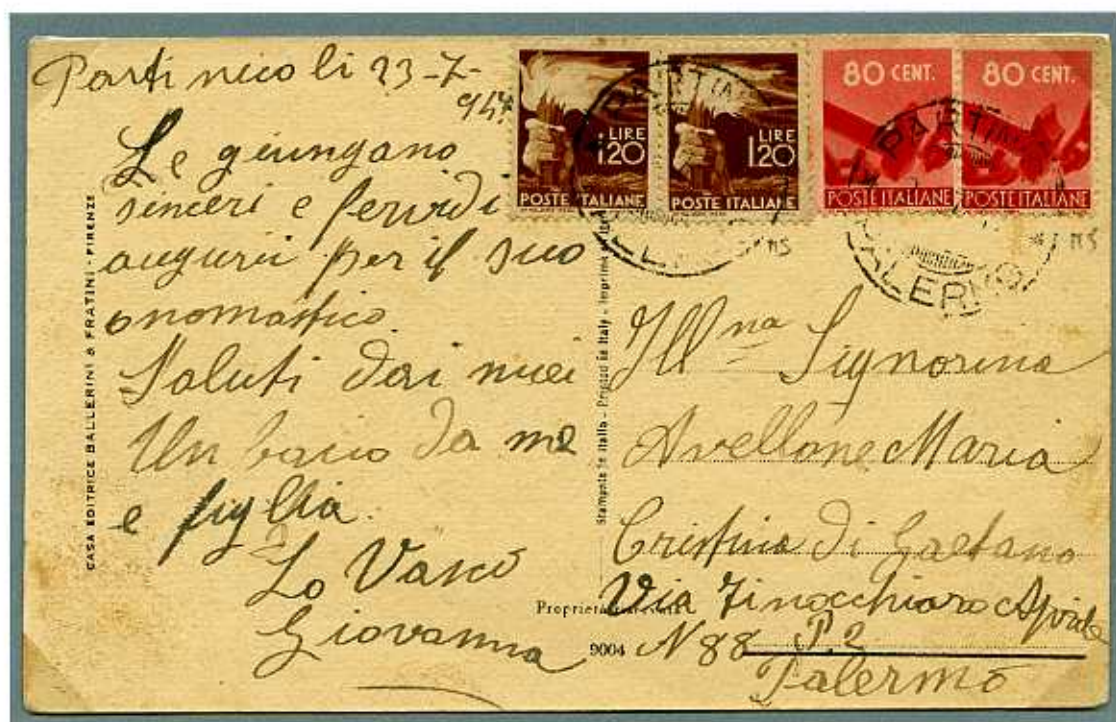 Partinico li 23-7-
947
Le giungano
sinceri e fervidi
auguri per il suo
onomastico.
Saluti dai miei
Un bacio da me
e figlia
Lo Vasco
Giovanna
CASA EDITRICE BALLERINI & FRATINI - FIRENZE
LIRE
1.20
POSTE ITALIANE
LIRE
1.20
POSTE ITALIANE
80 CENT.
POSTE ITALIANE
80 CENT.
POSTE ITALIANE
PARTIN
PARTIN
PALERMO
Stampata in Italia - Printed in Italy - Imprimé
Ill na Signorina
Avellone Maria
Cristina di Gaetano
Via Finocchiaro Aprile
N 88 P. 2
Palermo
Proprietà
9004